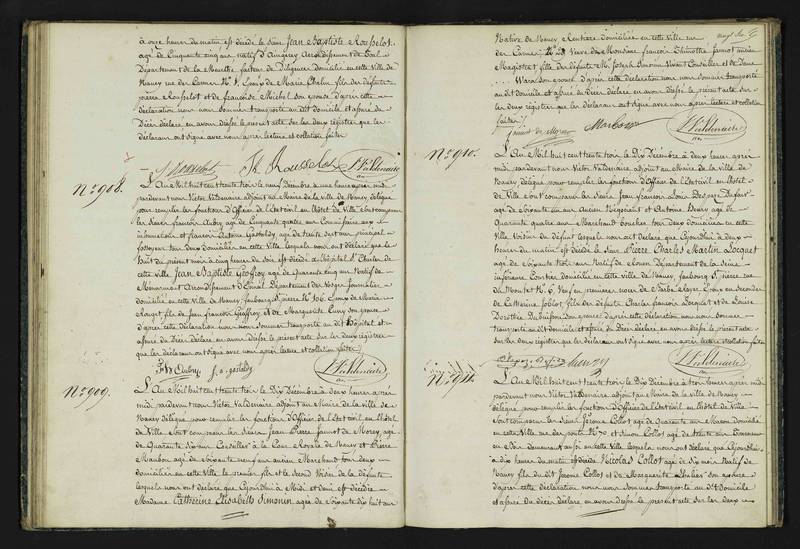 à onze heures du matin est décédé le sieur Jean Baptiste Rousselot
âgé de Cinquante cinq ans natif d'Aingeray Arrondissement de Toul
Département de la Meurthe, facteur de Diligences domicilié en cette Ville de
Nancy rue des Carmes Nº époux de Marie Chalin fils des défunts
pierre Rousselot et de françoise Michel son épouse d'après cette
déclaration nous nous sommes transporté au dit domicile et assuré du
Décès déclaré en avons dressé le présent acte sur les deux registres que les
déclarans ont signé avec nous après lecture et collation faites
Rousselot Rousselot V. Valdenaire
Nº 908.
L'An Mil huit cent trente trois le neuf Décembre à une heure après midi
pardevant nous Victor Valdenaire adjoint au Maire de la ville de Nancy, délégué
pour remplir les fonctions d'officier de l'État civil en l'hôtel de Ville sont comparus
les Sieurs françois Aubry âgé de Cinquante quatre ans Commissaire aux
inhumations et françois Antoine Gastaldy âgé de trente sept ans principal
fossoyeur tous deux domiciliés en cette ville lesquels nous ont déclaré que le
huit du présent mois à cinq heures du soir est décédé à l'hôpital St Charles de
cette ville Jean Baptiste Geoffroy âgé de Quarante cinq ans Natif de
Ménarmont Arrondissement d'Épinal Département des Vosges journalier
domicilié en cette Ville de Nancy, faubourg St pierre Nº 106. époux de Marie
fils de Jean françois Geoffroy et de Marguerite Cuny son épouse
d'après cette déclaration nous nous sommes transporté au dit Hôpital et
assuré du Décès déclaré en avons dressé le présent acte sur les deux registres
que les déclarans ont signé avec nous après lecture et collation faites
Aubry gastaldy V. Valdenaire
Nº 909.
L'An Mil huit cent trente trois le Dix Décembre à deux heures après
midi, pardevant nous Victor Valdenaire adjoint au Maire de la ville de
Nancy délégué pour remplir les fonctions d'Officier de l'État civil en l'hôtel
de Ville sont comparus les Sieurs Jean Pierre Jamot de Morey âgé
de Quarante six ans Conseiller à la Cour Royale de Nancy et Pierre
Maubon âgé de soixante neuf ans ancien Marchand tous deux
domiciliés en cette Ville, le premier fils et le second Voisin de la défunte
lesquels nous ont déclaré que Cejourd'hui à Midi et demi est décédée
Madame Catherine Elisabeth Simonin âgée de soixante dix huit ans
Native de Nancy Rentière domiciliée en cette Ville rue
des Carmes, Nº 23 Veuve de Monsieur françois Thimothée Jamot ancien
Magistrat, fille des défunts Mr. Joseph Simonin Vivant Conseiller et de Dame
son épouse d'après cette déclaration nous nous sommes transporté
au dit domicile et assuré du Décès déclaré en avons dressé le présent acte sur
les deux registres que les déclarans ont signé avec nous après lecture et collation
faites.
Jamot de Morey Maubon V. Valdenaire
Nº 910.
L'An Mil huit cent trente trois, le Dix Décembre à deux heures après
midi, pardevant nous Victor Valdenaire adjoint au Maire de la ville de
Nancy, délégué pour remplir les fonctions d'Officier de l'État civil en l'hôtel
de Ville sont comparus les Sieurs Jean françois Louis
âgé de soixante six ans Ancien Négociant et Antoine Henry âgé de
Quarante quatre ans Marchand boucher tous deux domiciliés en cette
Ville Voisins du défunt lesquels nous ont déclaré que Cejourd'hui à deux
heures du matin est décédé le sieur Pierre Charles Martin Locquet
âgé de soixante trois ans Natif de Rouen Département de la Seine
inférieure Courtier domicilié en cette Ville de Nancy, faubourg St. pierre rue
du Montet Nº 6. Veuf en premières noces de époux en secondes
de Catherine Joblot, fils des défunts Charles françois Locquet et de Louise
Dorothée Dubuisson, son épouse, d'après cette déclaration nous nous sommes
transporté au dit domicile et assuré du Décès déclaré en avons dressé le présent acte
sur les deux registres que les déclarans ont signé avec nous après lecture et collation faites.
henry V. Valdenaire
Nº 911.
L'An Mil huit cent trente trois le Dix Décembre à trois heures après midi
pardevant nous Victor Valdenaire adjoint au Maire de la ville de Nancy
délégué pour remplir les fonctions d'Officier de l'État civil en l'hôtel de Ville
sont comparus les Sieurs Jérome Collot âgé de Quarante ans Maçon domicilié
en cette Ville rue et Simon Collot âgé de trente ans
demeurant aussi en cette Ville lesquels nous ont déclaré que Cejourd'hui
à dix heures du matin est décédé Nicolas Collot âgé de dix mois Natif de
Nancy fils du dit Jérome Collot et de Marguerite Lhulier son épouse
d'après cette déclaration nous nous sommes transporté au dit domicile
et assuré du décès déclaré en avons dressé le présent acte sur les deux